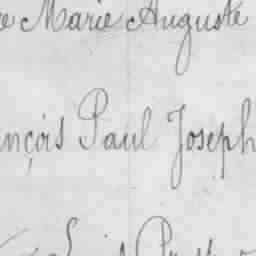 e Marie Auguste
nçois Paul Joseph